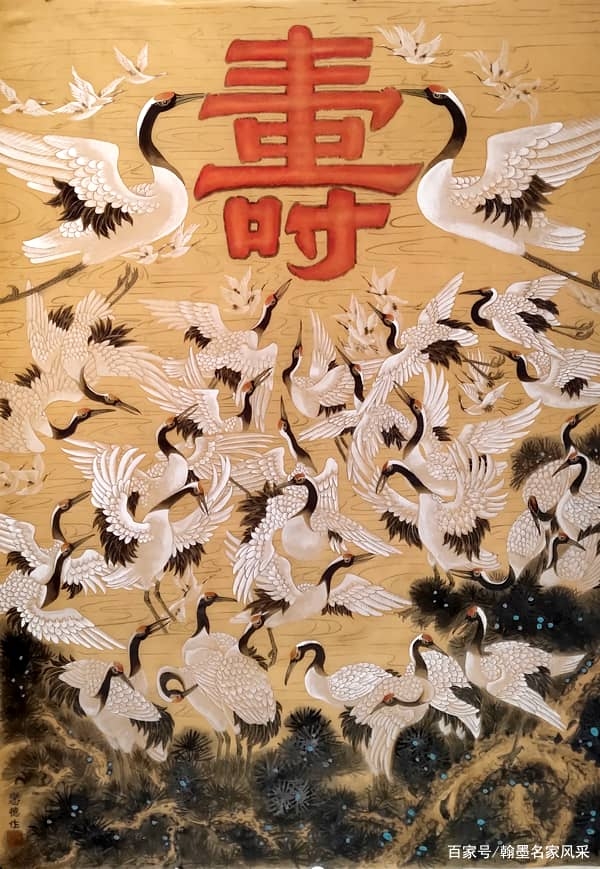 壽
德作
百家号/翰墨名家风采